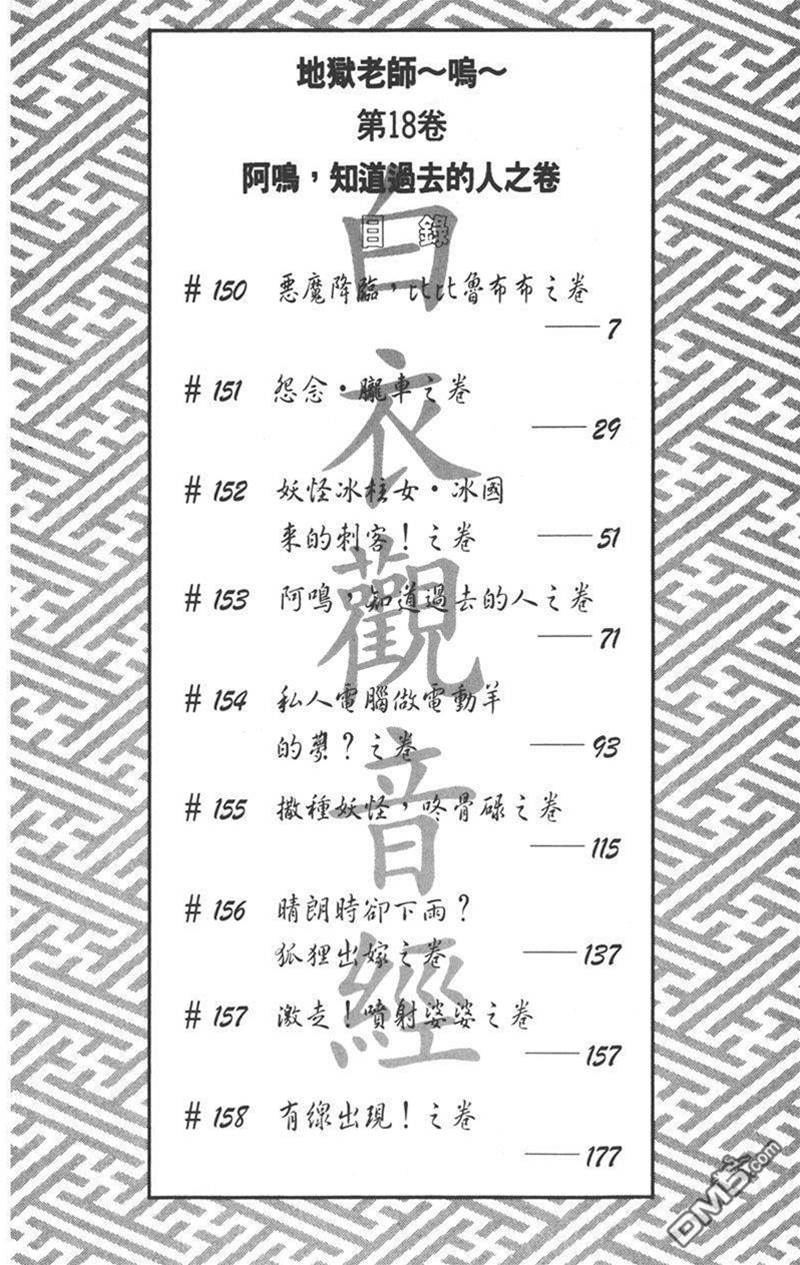 地獄老師～鳴～
第18卷
阿鳴，知道過去的人之卷
目錄
# 150 惡魔降臨，比比魯布布之卷
——7
# 151 怨念・朧車之卷
——29
# 152 妖怪冰柱女・冰國
來的刺客！之卷 ——51
# 153 阿鳴，知道過去的人之卷
——71
# 154 私人電腦做電動羊
的夢？之卷 ——93
# 155 撒種妖怪，咚骨碌之卷
——115
# 156 晴朗時卻下雨？
狐狸出嫁之卷 ——137
# 157 激走！噴射婆婆之卷
——157
# 158 有線出現！之卷
——177
白衣觀音經
DM5.com